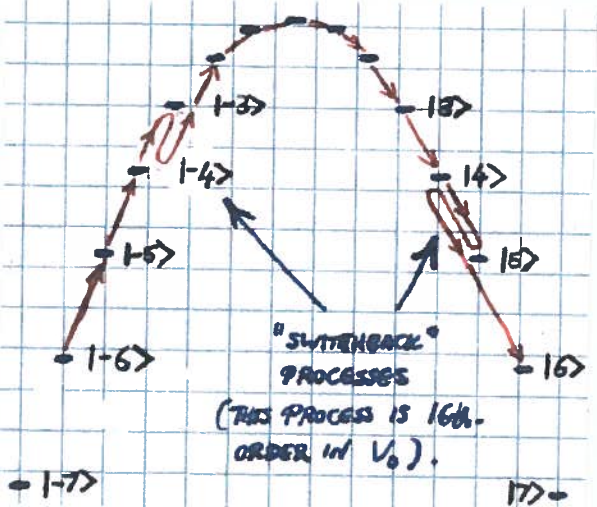 |-3>
|3>
|-4>
|4>
|-5>
|5>
|-6>
|6>
"SWITCHBACK"
PROCESSES
(THIS PROCESS IS 16th.
ORDER IN V₀).
|-7>
|7>